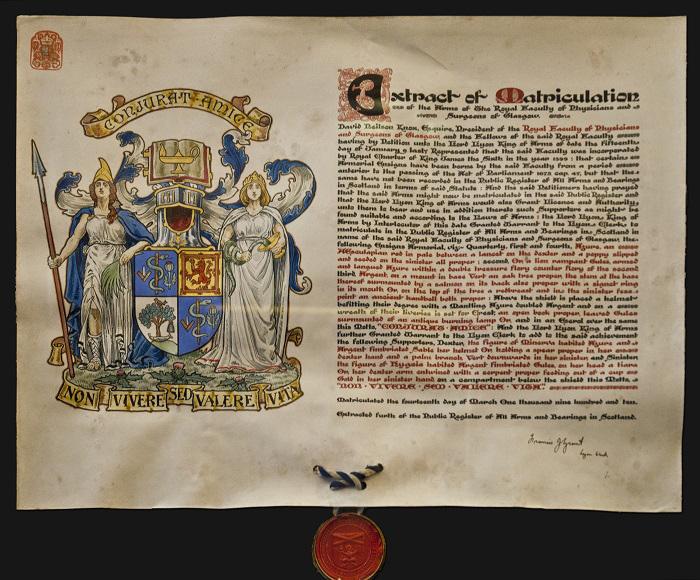 CONJURAT AMICE
NON VIVERE SED VALERE VITA
Extract of Matriculation
of the Arms of The Royal Faculty of Physicians and
Surgeons of Glasgow.
David Neilson Knox, Esquire, President of the Royal Faculty of Physicians
and Surgeons of Glasgow, and the Fellows of the said Royal Faculty
having by Petition unto the Lord Lyon King of Arms of date the fifteenth
day of January last Represented that the said Faculty was incorporated
by Royal Charter of King James the Sixth in the year 1599: that certain
Armorial Ensigns have been borne by the said Faculty from a period
anterior to the passing of the Act of Parliament 1672 cap. 47, but that the
same have not been recorded in the Public Register of All Arms and Bearings
in Scotland in terms of said Statute: And the said Petitioners having prayed
that the said Arms might now be matriculated in the said Public Register and
that the Lord Lyon King of Arms would also Grant Licence and Authority
unto them to bear and use in addition thereto such Supporters as might be
found suitable and according to the Laws of Arms: the Lord Lyon King of
Arms by Interlocutor of this date Granted Warrant to the Lyon Clerk to
matriculate in the Public Register of All Arms and Bearings in Scotland in
name of the said Royal Faculty of Physicians and Surgeons of Glasgow the
following Ensigns Armorial, viz: Quarterly, first and fourth, Azure, an
Æsculapian rod in pale between a lancet on the dexter and a poppy slipped
and seeded on the sinister all proper: second, Or a lion rampant Gules, armed
and langued Azure within a double tressure flory counter flory of the second
third, Argent on a mount in base Vert an oak tree proper, the stem at the base
thereof surmounted by a salmon on its back also proper with a signet ring
in its mouth Or, on the top of the tree a redbreast and in the sinister fess
point an ancient handbell both proper: Above the shield is placed a helmet
befitting their degree with a Mantling Azure doubled Argent and on a
wreath of their liveries is set for Crest, an open book proper, leaved Gules
surmounted of an antique burning lamp Or, and in an Escrol over the same
this Motto, "CONJURAT AMICE": And the Lord Lyon King of Arms
further Granted Warrant to the Lyon Clerk to add to the said achievement
the following Supporters, Dexter, the figure of Minerva habited Azure and
Argent fimbriated Gold, her helmet Or holding a spear proper in her
dexter hand and a palm branch Vert downwards in her sinister, and Sinister,
the figure of Hygeia habited Argent fimbriated Gules, on her head a tiara
Or, her dexter arm entwined with a serpent proper feeding out of a cup
Gold in her sinister hand on a compartment below the shield this Motto,
"NON · VIVERE · SED · VALERE · VITA".
Matriculated the fourteenth day of March One thousand nine hundred and ten.
Extracted furth of the Public Register of All Arms and Bearings in Scotland.
Francis J Grant
Lyon Clerk